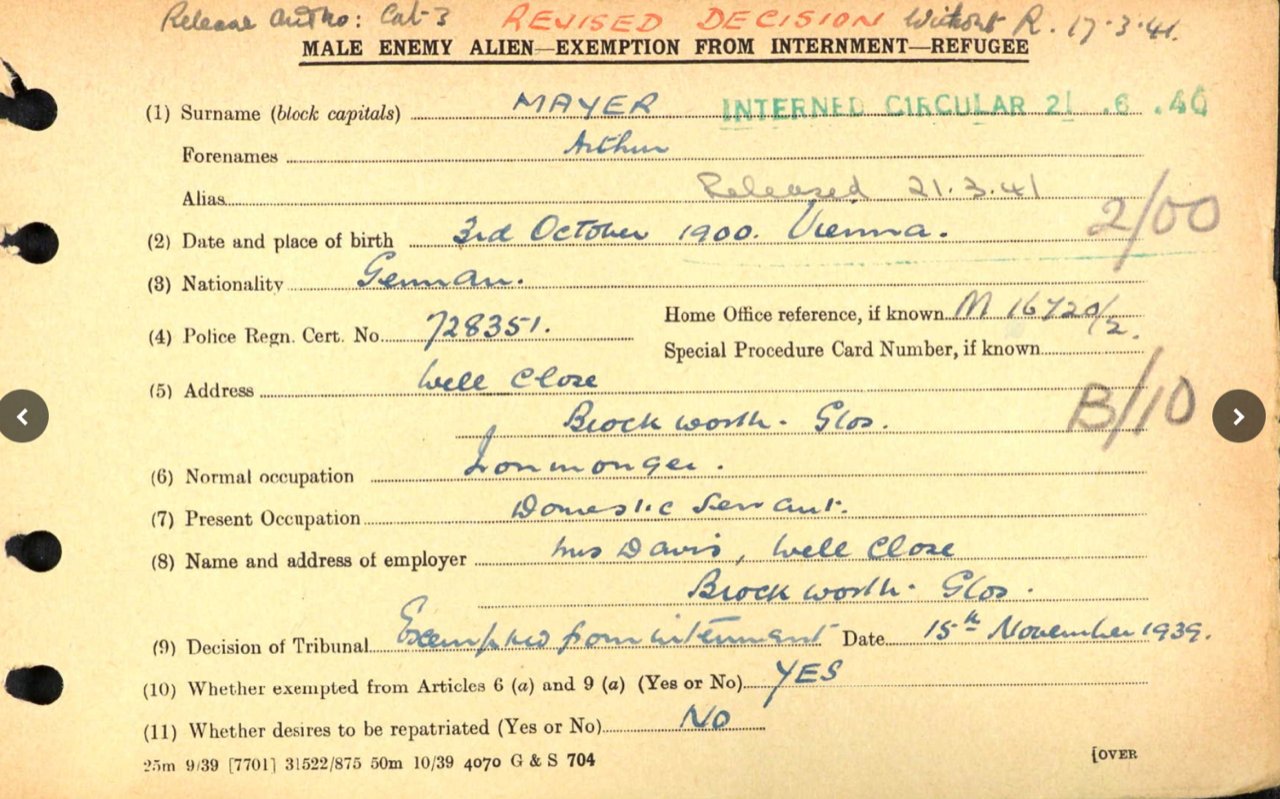 Release Autho: Cat-3 REVISED DECISION Without R. 17.3.41.
MALE ENEMY ALIEN—EXEMPTION FROM INTERNMENT—REFUGEE
(1) Surname (block capitals) MAYER INTERNED CIRCULAR 21 .6 .40
Forenames Arthur
Alias Released 21.3.41
2/00
(2) Date and place of birth 3rd October 1900. Vienna.
(3) Nationality German.
Home Office reference, if known M 16720/2.
(4) Police Regn. Cert. No. 728351.
Special Procedure Card Number, if known
(5) Address Well Close
B/10
Brockworth. Glos.
(6) Normal occupation Ironmonger.
(7) Present Occupation Domestic Servant.
(8) Name and address of employer Mrs Davis, Well Close
Brockworth. Glos.
(9) Decision of Tribunal Exempted from internment Date 15th November 1939.
(10) Whether exempted from Articles 6 (a) and 9 (a) (Yes or No) YES
(11) Whether desires to be repatriated (Yes or No) NO
25m 9/39 [7701] 31522/875 50m 10/39 4070 G & S 704 [OVER